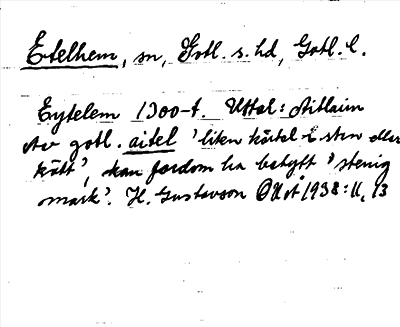 Etelhem, sn, Gotl. s. hd, Gotl. l.
Eytelem 1300-t. Uttal: Aitlaim
Av gotl. aitel 'liten körtel i sten eller
kött', kan fordom ha betytt 'stenig
mark'. H. Gustavson 1938: II, 13